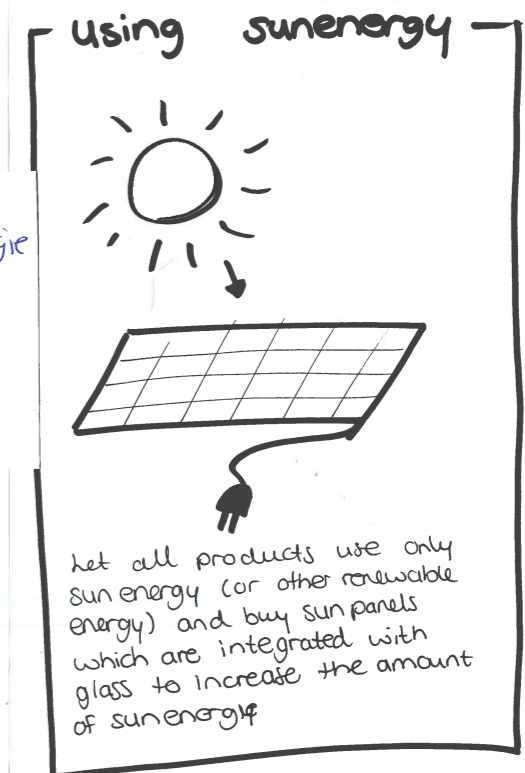 using sunenergy
gie
Let all products use only
sun energy (or other renewable
energy) and buy sun panels
which are integrated with
glass to increase the amount
of sunenergie